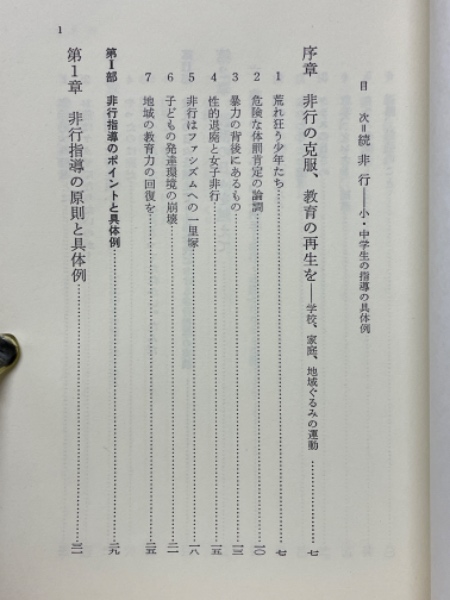 目　次＝続　非　行――小・中学生の指導の具体例
序章　非行の克服、教育の再生を――学校、家庭、地域ぐるみの運動……七
1　荒れ狂う少年たち……七
2　危険な体罰肯定の論調……一〇
3　暴力の背後にあるもの……一三
4　性的退廃と女子非行……一五
5　非行はファシズムへの一里塚……一八
6　子どもの発達環境の崩壊……二一
7　地域の教育力の回復を……二五
第Ⅰ部　非行指導のポイントと具体例……二九
第1章　非行指導の原則と具体例……三一
1